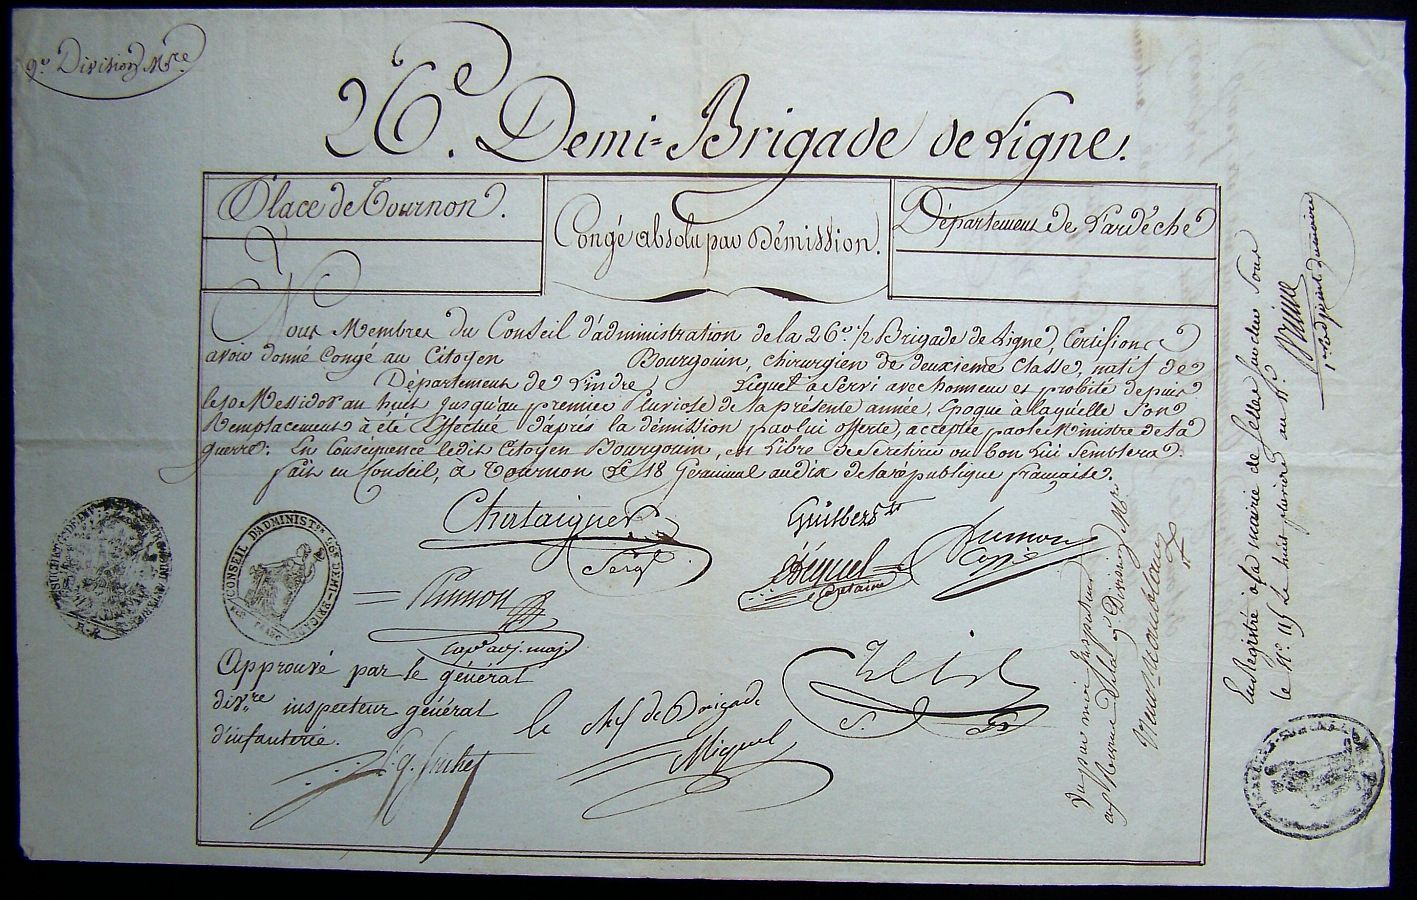 9e Division Mre
26e. Demi=Brigade de Ligne.
Place de Tournon.
Congé absolu par Démission.
Département de Lardêche
Nous Membres du Conseil d'administration de la 26e 1/2 Brigade de Ligne, Certifions
avoir donné Congé au Citoyen Bourgouin, chirurgien de deuxième Classe, natif de
Département de Lindre Lequel à Servi avec honneur et probité depuis
le 10 Messidor an huit jusqu'au premier Pluviose de la présente année, Epoque à laquelle Son
Remplacement à été Effectué d'après la démission par lui offerte, acceptée par le Ministre de la
guerre: En Conséquence ledit Citoyen Bourgouin, est Libre de Se retirer ou bon Lui Semblera:
fait en Conseil, à Tournon Le 18 Germinal an dix de la république française.
Chataigner
Sergt
Guilbert
Béquel
Capitaine
Dumon
CONSEIL D'ADMINIST.on 26e DEMI-BRIGADE
cape adj. maj.
Approuvé par le général
divre inspecteur général
d'infanterie.
le chef de Brigade
Miquel
Vu par moi Inspecteur
Mre
Enregistré à la mairie de Celles Sur cher Sous
le No. 115 Le huit pluviose an
1er adjoint du maire